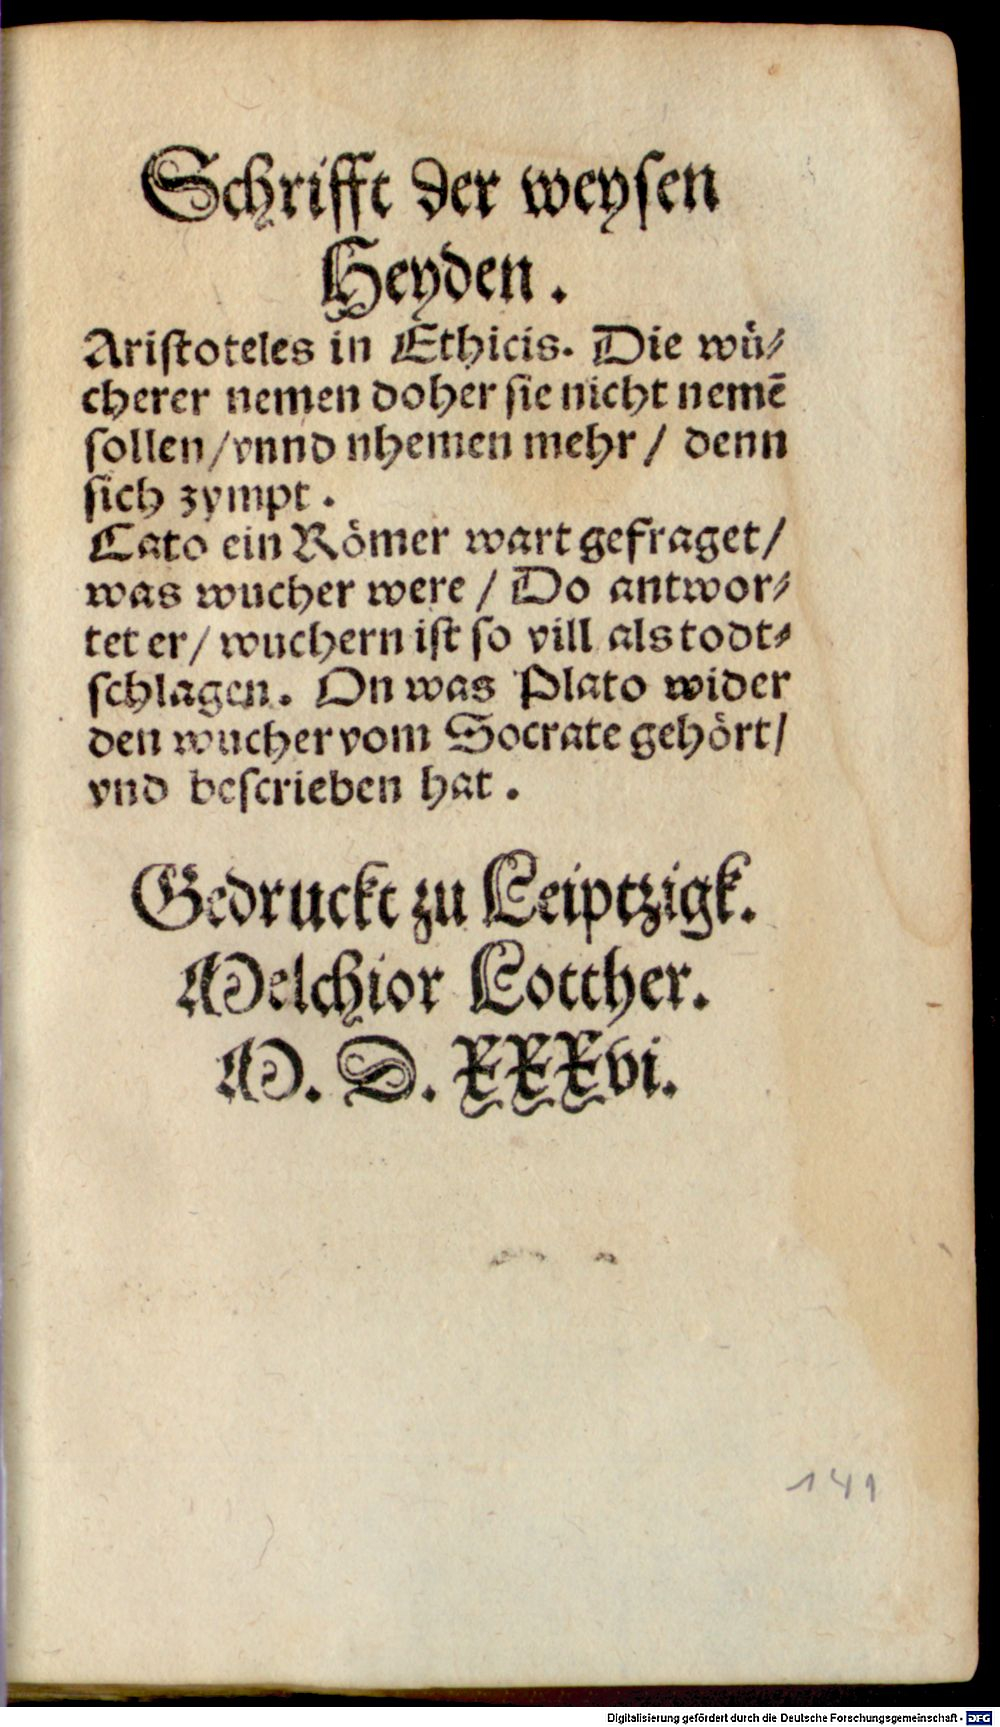 Schrifft der weysen
Heyden.
Aristoteles in Ethicis. Die wuͤ⸗
cherer nemen doher sie nicht nemē
sollen/vnnd nhemen mehr/ denn
sich zympt.
Cato ein Roͤmer wart gefraget/
was wucher were/ Do antwor⸗
tet er/ wuchern ist so vill als todt⸗
schlagen. On was Plato wider
den wucher vom Socrate gehoͤrt/
vnd bescrieben hat.
Gedruckt zu Leiptzigk.
Melchior Lotther.
M. D. XXXvi.
141
Digitalisierung gefördert durch die Deutsche Forschungsgemeinschaft - DFG